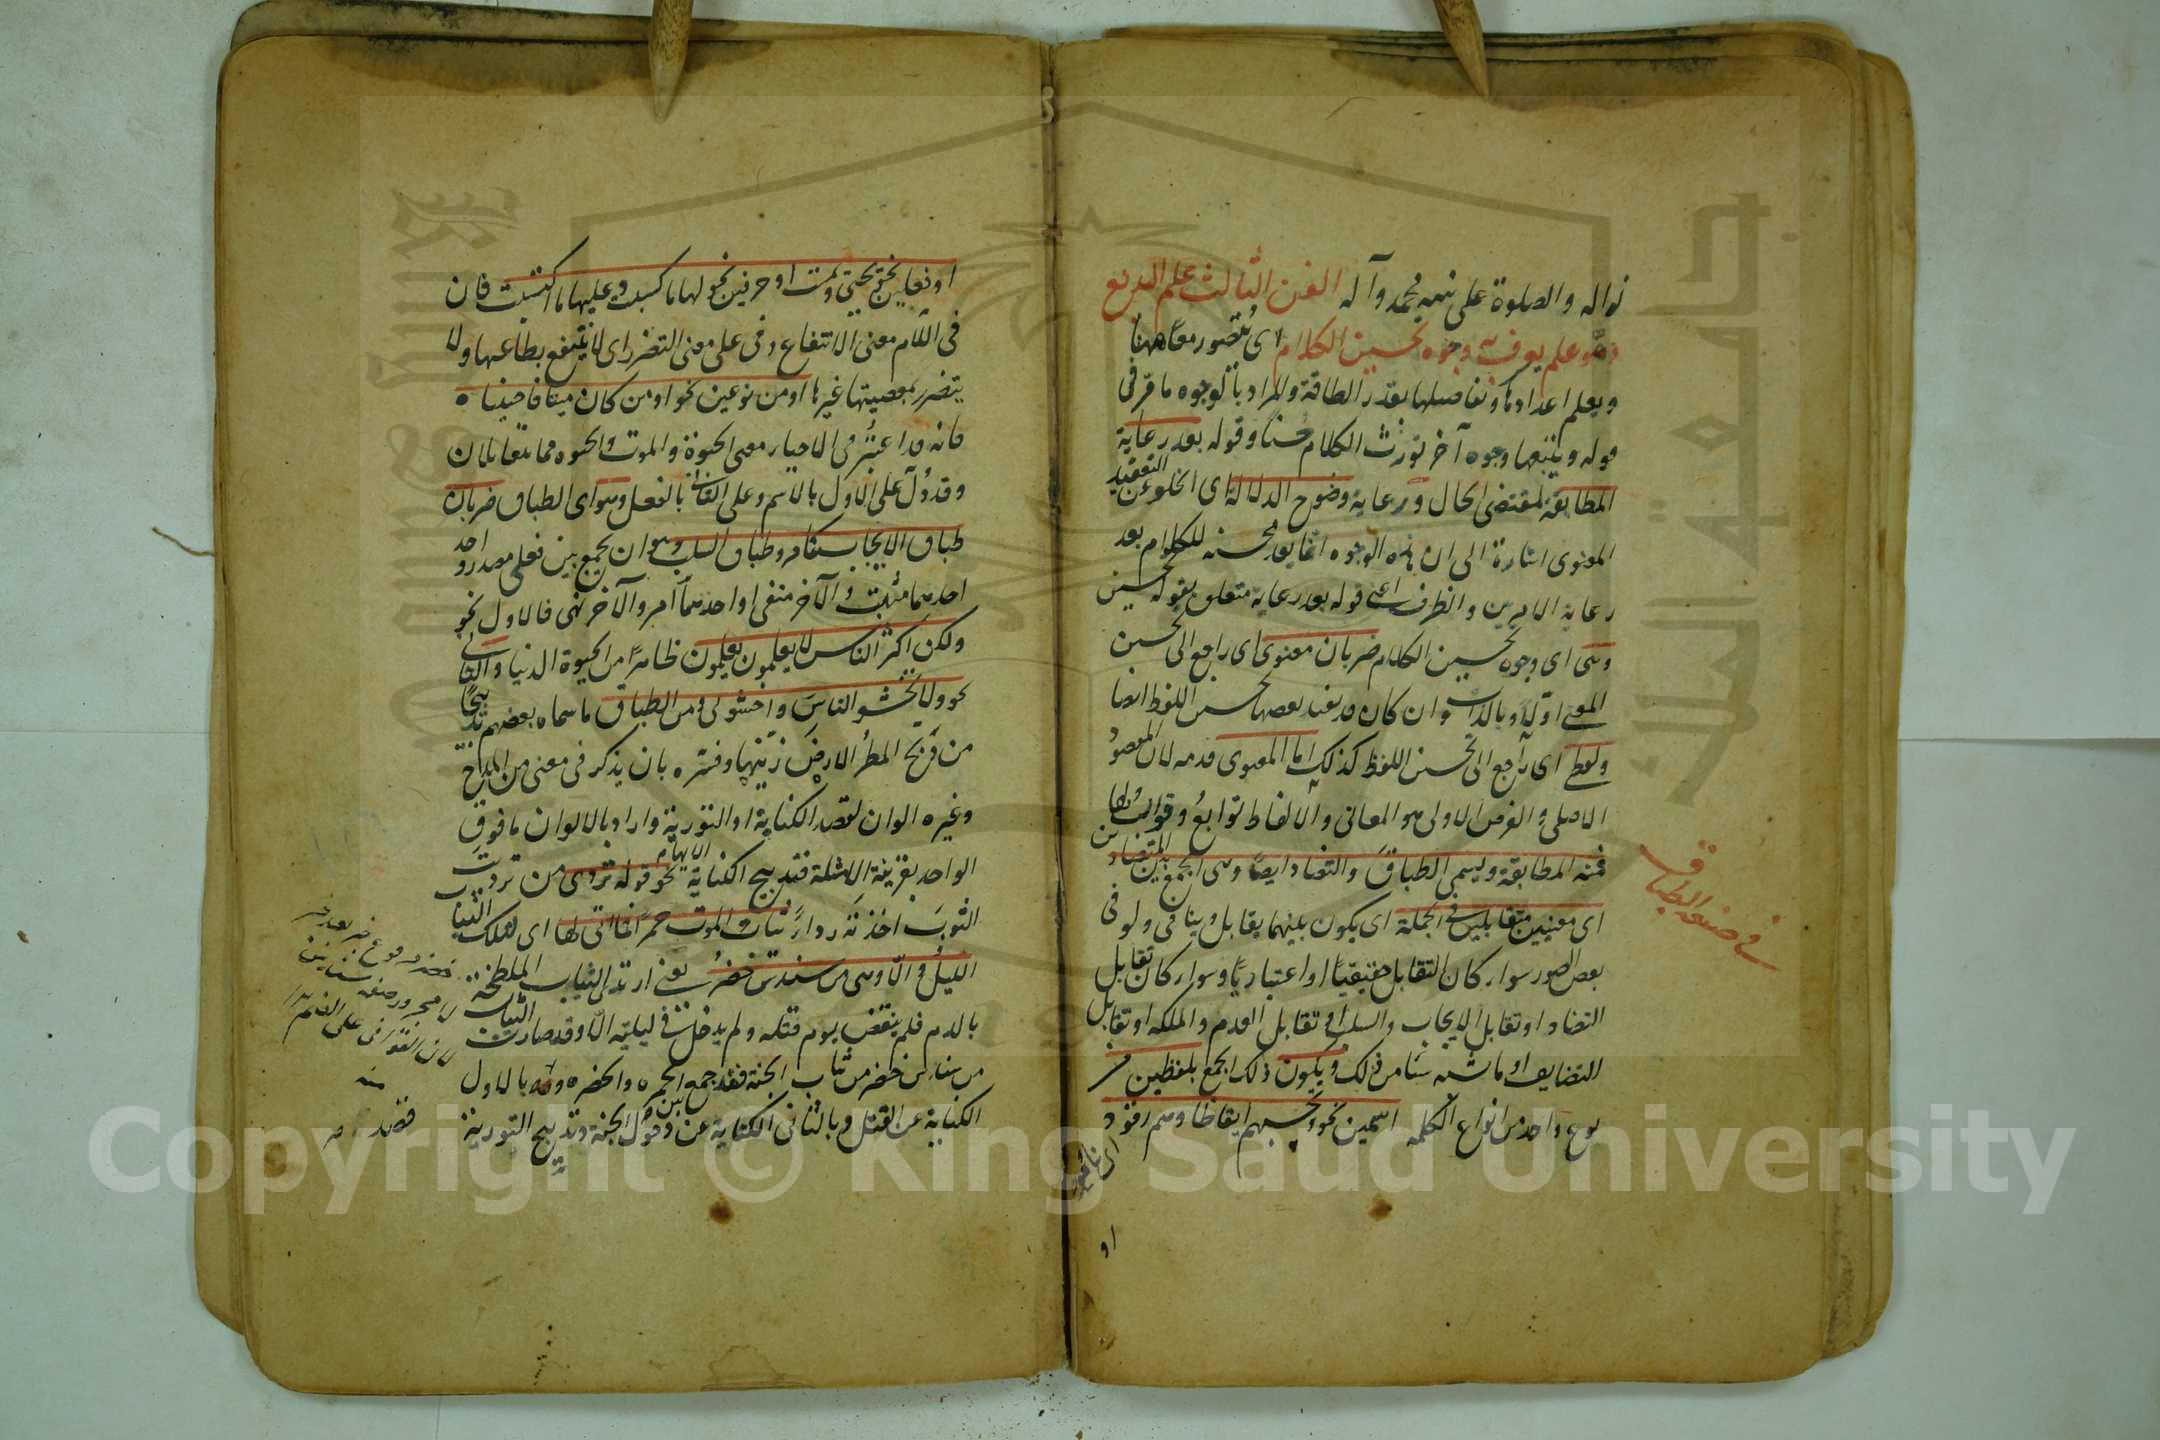 نواله والصلوة على نبيه محمد وآله الفن الثالث علم البديع
وهو علم يعرف به وجوه تحسين الكلام اى يتصور معانيها
ويعلم اعدادها وتفاصيلها بقدر الطاقة والمراد بالوجوه ما مر فى
قوله ويتبعها وجوه آخر تورث الكلام حسنا وقوله بعد رعاية
المطابقة لمقتضى الحال ورعاية وضوح الدلالة اى الخلو عن التعقيد
المعنوى اشارة الى ان هذه الوجوه انما يعد محسنة للكلام بعد
رعاية الامرين والظرف اعنى قوله بعد رعاية متعلق بقوله تحسين
وهى اى وجوه تحسين الكلام ضربان معنوى اى راجع الى تحسين
المعنى اولا وبالذات وان كان قد يفيد بعضها تحسين اللفظ ايضا
ولفظى اى راجع الى تحسين اللفظ كذلك اما المعنوى قدمه لان المقصود
الاصلى والغرض الاولى هو المعانى والالفاظ توابع وقوالب لها
فمنه المطابقة ويسمى الطباق والتضاد ايضا وهى الجمع بين المتضادين
اى معنيين متقابلين فى الجملة اى يكون بينهما تقابل وتنافى ولو فى
بعض الصور سواء كان التقابل حقيقيا او اعتباريا وسواء كان تقابل
التضاد او تقابل الايجاب والسلب او تقابل العدم والملكة او تقابل
التضايف او ما شبه شيئا من ذلك ويكون ذلك الجمع بلفظين من
نوع واحد من انواع الكلمة اسمين نحو وتحسبهم ايقاظا وهم رقود
او
فى صنعة الطباق
او فعلين نحو يحيى ويميت او حرفين نحو لها ما كسبت وعليها ما اكتسبت فان
فى اللام معنى الانتفاع وفى على معنى التضرر اى لا ينتفع بطاعتها ولا
يتضرر بمعصيتها غيرها او من نوعين نحو اومن كان ميتا فاحييناه
فانه قد اعتبر فى الاحياء معنى الحيوة والموت والحيوة مما يتقابلان
وقد دل على الاول بالاسم وعلى الثانى بالفعل وهو اى الطباق ضربان
طباق الايجاب كما مر وطباق السلب وهو ان يجمع بين فعلى مصدر واحد
احدهما مثبت والآخر منفى او احدهما امر والآخر نهى فالاول نحو
ولكن اكثر الناس لا يعلمون يعلمون ظاهرا من الحيوة الدنيا والثانى
نحو ولا تخشو الناس واخشونى ومن الطباق ما سماه بعضهم تدبيجا
من دبج المطر الارض زينها وفسره بان يذكر فى معنى من المدح
وغيره الوان لقصد الكناية او التورية واراد بالالوان ما فوق
الواحد بقرينة الامثلة فتدبيج الكناية نحو قوله تردى من ترديت
الثوب اخذته رداء ثياب الموت حمرا فما اتى لها اى لتلك الثياب
الليل الا وهى من سندس خضر يعنى ارتدى الثياب الملطخة
بالدم فلم ينقض يوم قتله ولم يدخل فى ليلته الا وقد صارت الثياب
من سندس خضر من ثياب الجنة فقد جمع بين الحمرة والخضرة وقصد بالاول
الكناية عن القتل وبالثانى الكناية عن دخول الجنة وتدبيج التورية